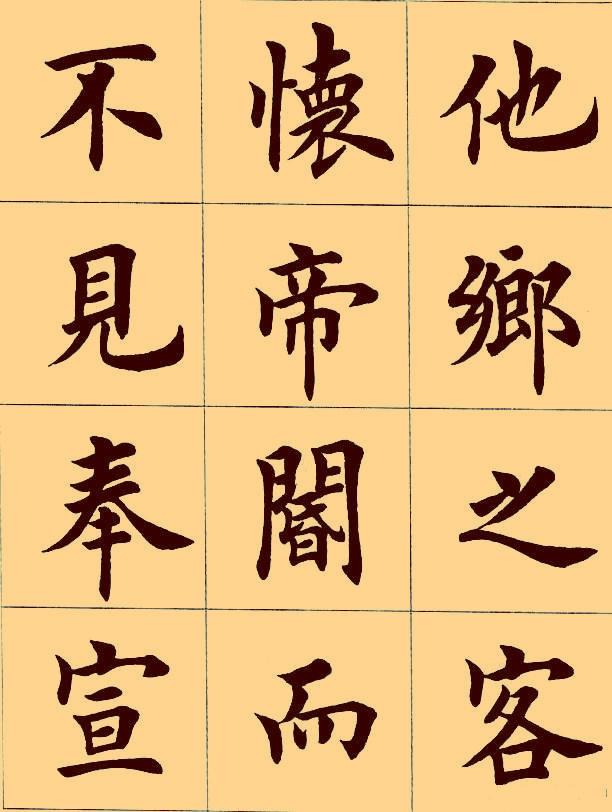 他鄉之客
懷帝閽而
不見奉宣